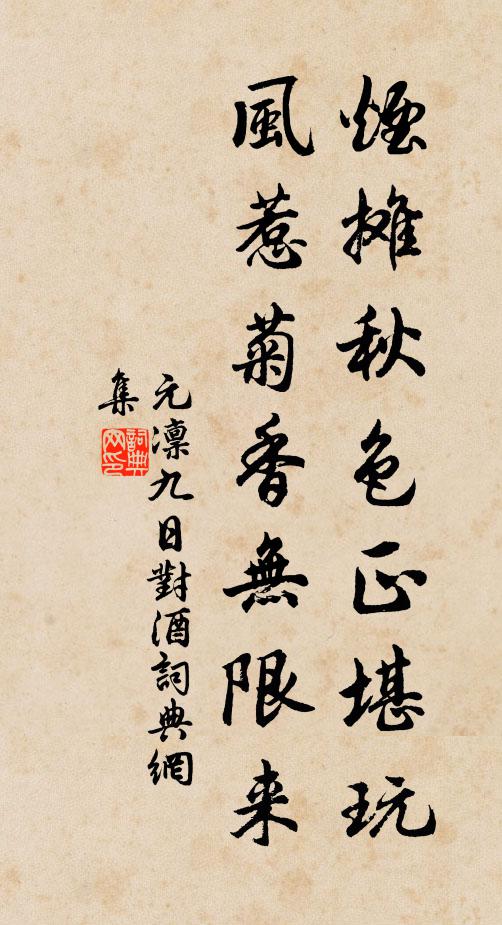 煙摊秋色正堪玩
風惹菊香無限来
元凛九日對酒詞典網
集
詞典
网印